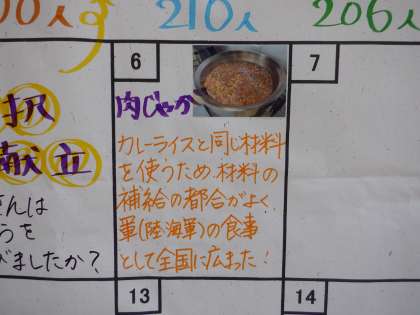 00人 210人 206人
6 7
肉じゃが
カレーライスと同じ材料
を使うため、材料の
補給の都合がよく
軍(陸海軍)の食事
として全国に広まった!
択
献立
さんは
うを
びましたか?
13 14